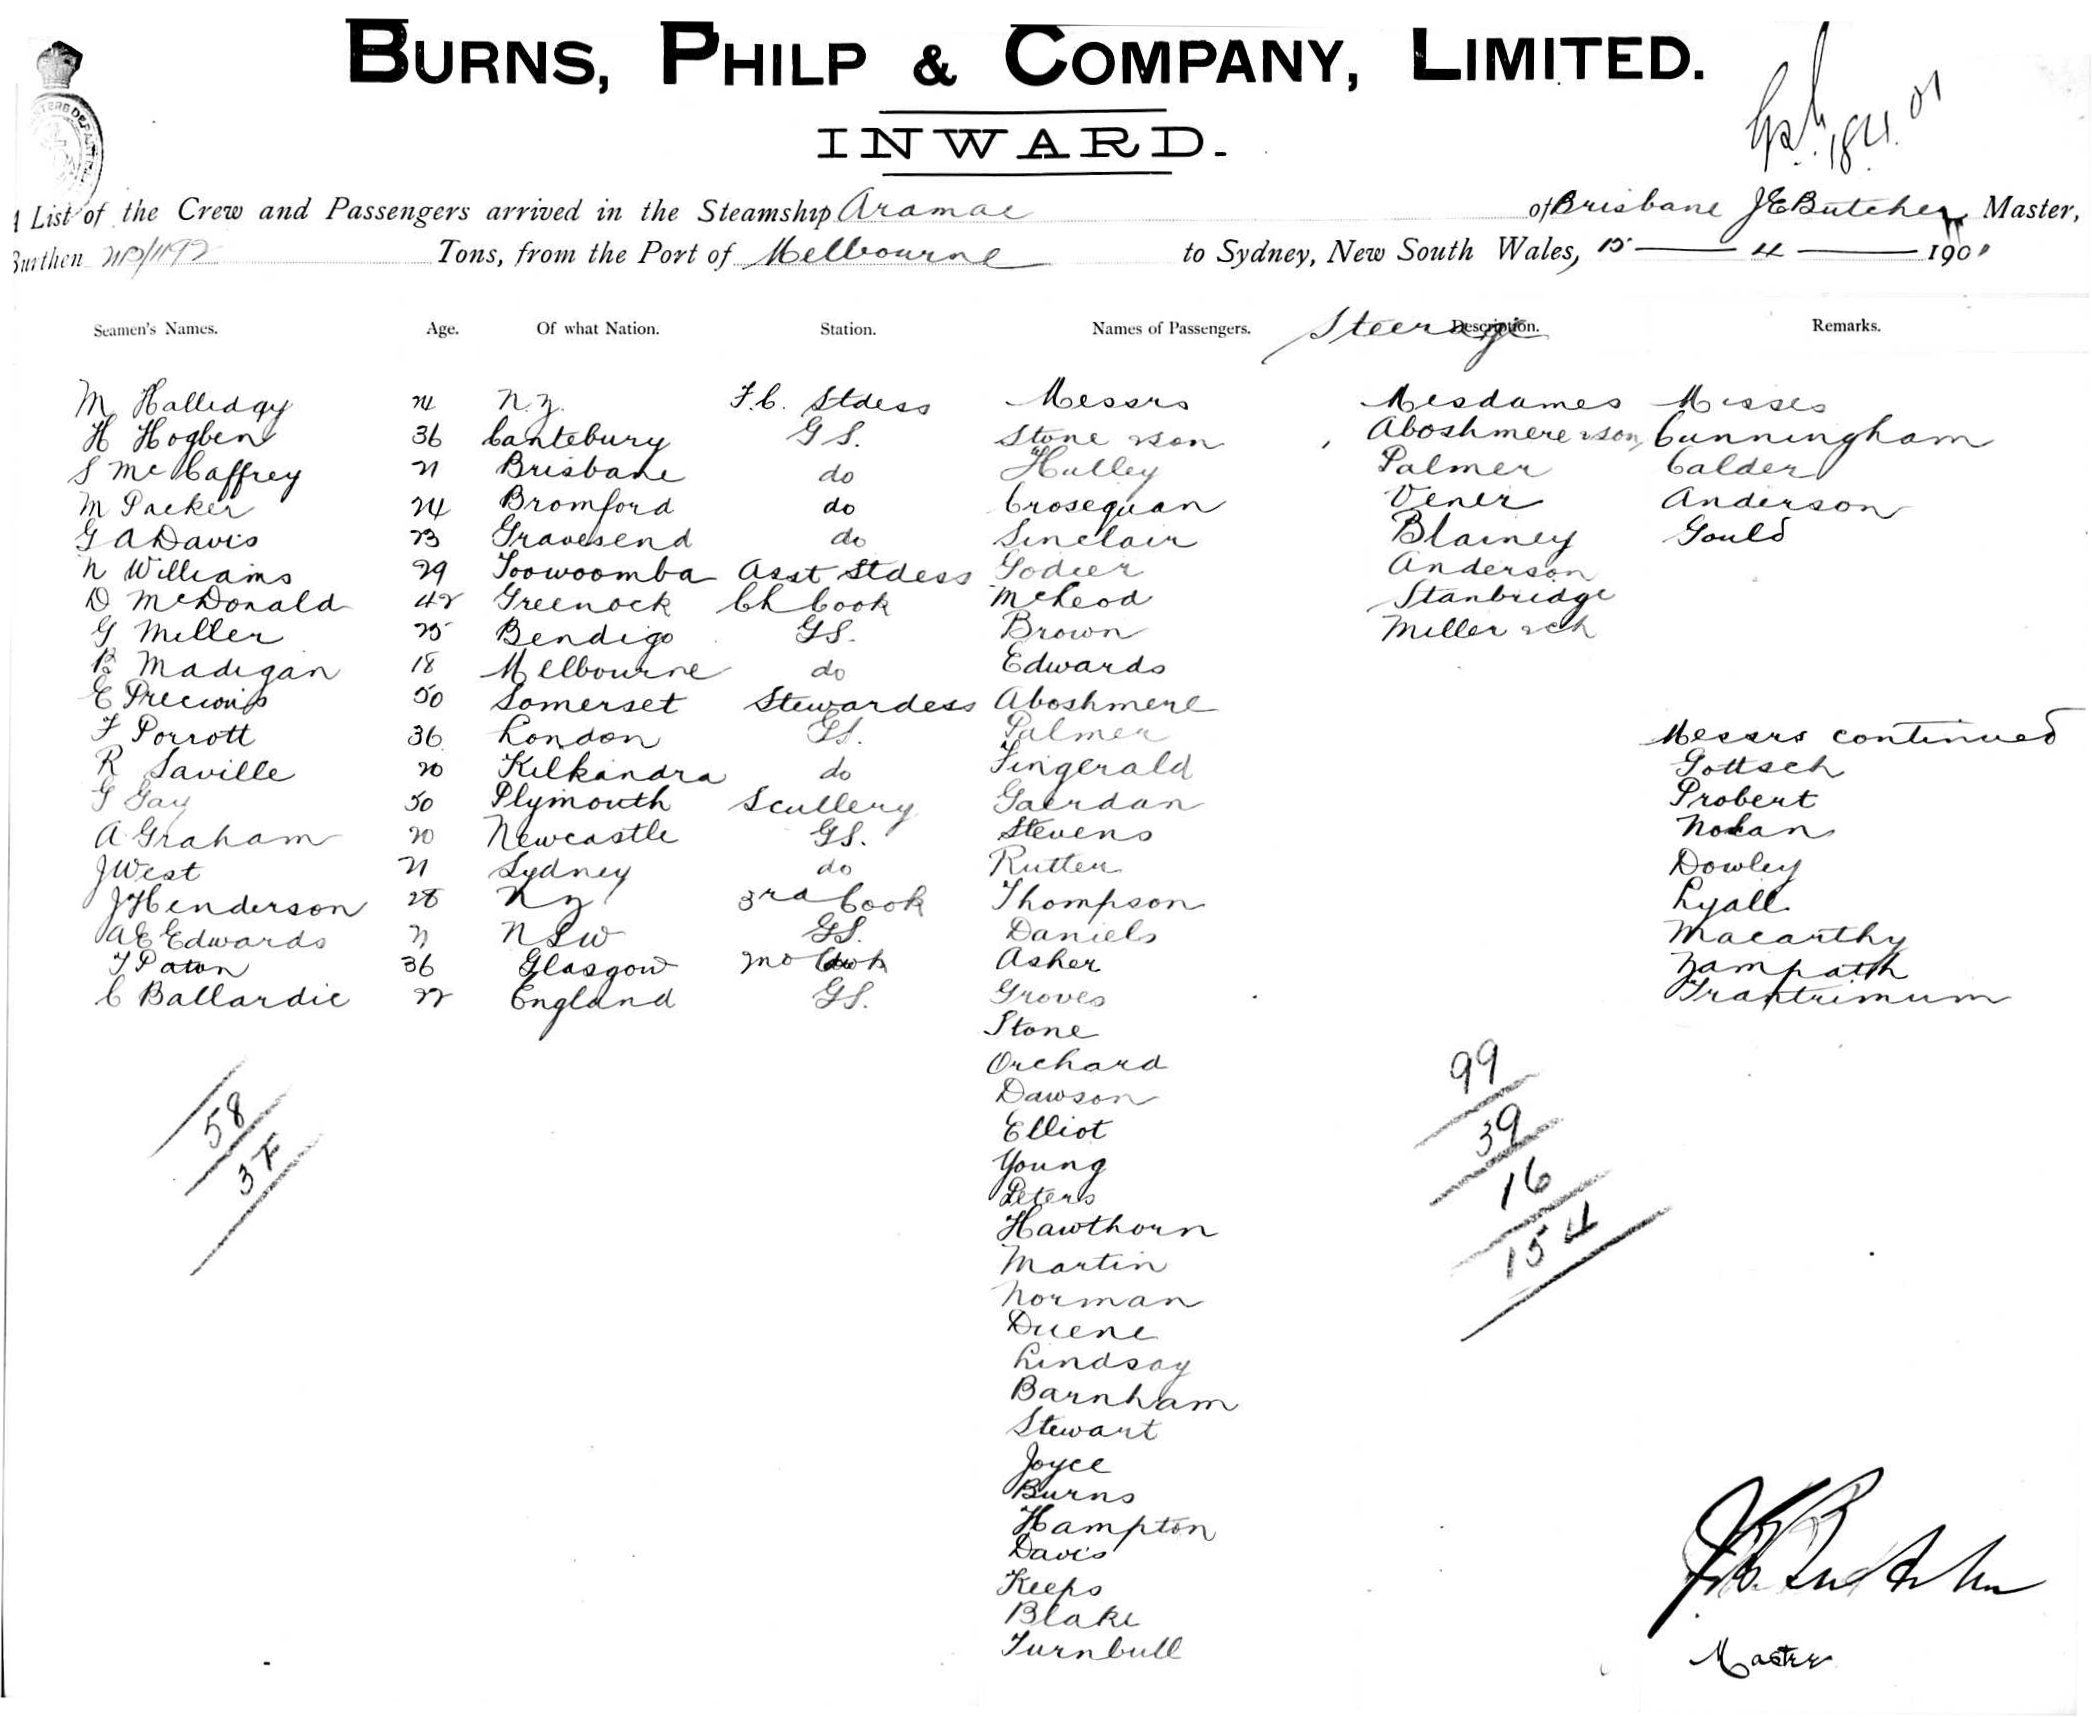 BURNS, PHILP & COMPANY, LIMITED.
INWARD.
18.4.01
A List of the Crew and Passengers arrived in the Steamship Aramac of Brisbane J E Butcher, Master,
Burthen Tons, from the Port of Melbourne to Sydney, New South Wales, 15 — 4 — 1901
Seamen's Names. Age. Of what Nation. Station. Names of Passengers. Steerage Description. Remarks.
M Halliday 21 N.Z. F.C. Stdess Messrs Mesdames Misses
H Hogben 36 Cantebury G S. Stone & son Aboshmere & son, Cunningham
S McCaffrey 21 Brisbane do Hulley Palmer Calder
M Packer 24 Bromford do Crosequan Vener Anderson
G A Davis 23 Gravesend do Sinclair Blainey Gould
N Williams 29 Toowoomba Asst Stdess Godier Anderson
D McDonald 42 Greenock Ch Cook McLeod Stanbridge
G Miller 25 Bendigo GS. Brown Miller & ch
R Madigan 18 Melbourne do Edwards
E Precious 50 Somerset Stewardess Aboshmere
F Porrott 36 London GS. Palmer Messrs continued
R Saville 20 Kilkandra do Fingerald Gottsch
G Gay 50 Plymouth Scullery Gaerdan Probert
A Graham 20 Newcastle GS. Stevens Nolan
J West 21 Sydney do Rutter Dowley
J Henderson 28 N Z 3rd Cook Thompson Lyall
A E Edwards 21 N S W GS. Daniels Macarthy
T Paton 36 Glasgow 2nd Cook Asher Zampatti
C Ballardie 22 England GS. Groves Trantrimum
Stone
Orchard
Dawson
Elliot
Young
Peters
Hawthorn
Martin
Norman
Duene
Lindsay
Barnham
Stewart
Joyce
Burns
Hampton
Davis
Keeps
Blake
Turnbull
58
37
99
39
16
154
Master